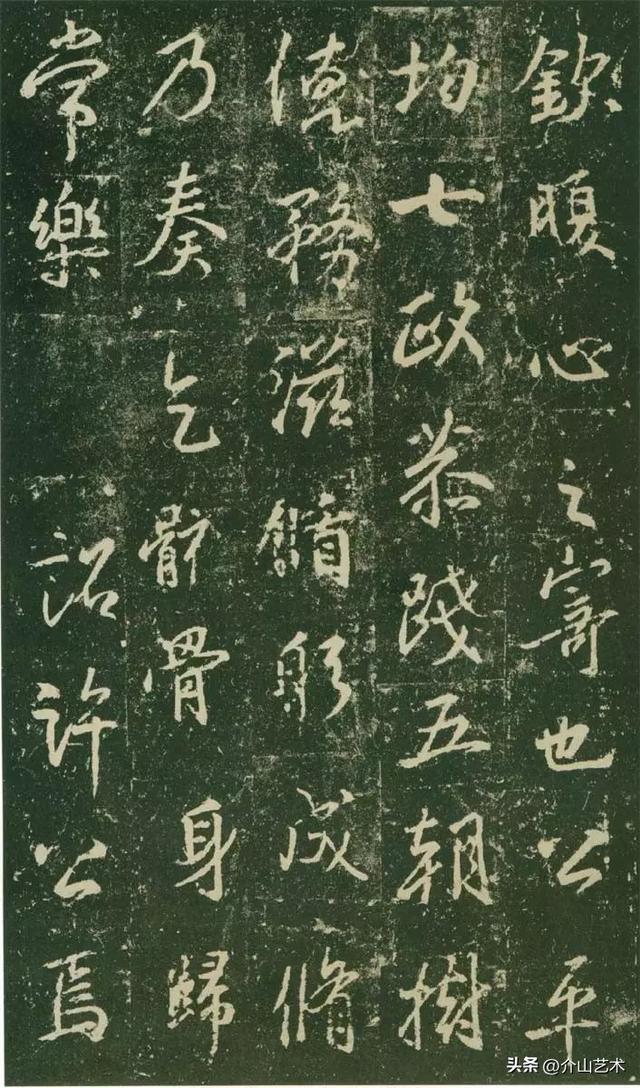 欽腹心之寄也公平
均七政恭踐五朝樹
德務滋躬脩
乃奏乞骸骨身歸
常樂 詔許公焉
头条 @介山艺术